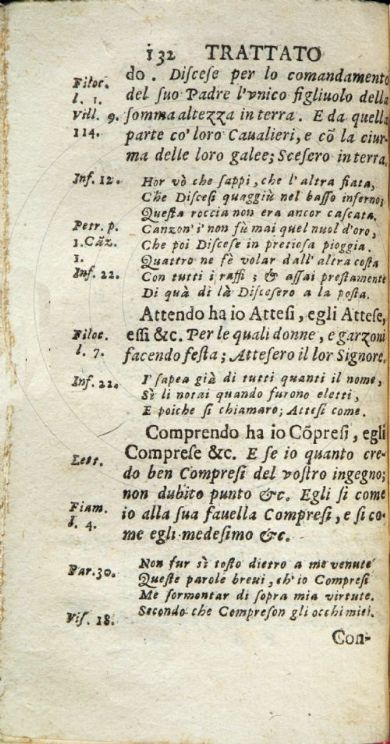 132 TRATTATO
do. Discese per lo comandamento
Filoc. del suo Padre l'vnico figliuolo della
l. 1. somma altezza in terra. E da quella
Vill. 9. parte co' loro Caualieri, e cõ la ciur-
114. ma delle loro galee; Scesero in terra.
Inf. 12. Hor vò che sappi, che l'altra fiata,
Che Discesi quaggiù nel basso inferno;
Questa roccia non era ancor cascata.
Petr. p. Canzon' i' non fù mai quel nuol d'oro,
1. Cãz. Che poi Discese in pretiosa pioggia.
1. Quattro ne fè volar dall' altra costa
Inf. 22. Con tutti i raffi; & assai prestamente
Di quà di là Discesero a la posta.
Attendo ha io Attesi, egli Attese,
Filoc. essi &c. Per le quali donne, e garzoni
l. 7. facendo festa; Attesero il lor Signore.
Inf. 22. I' sapea già di tutti quanti il nome,
Sì li notai quando furono eletti,
E poiche si chiamaro; Attesi come.
Comprendo ha io Cõpresi, egli
Lett. Comprese &c. E se io quanto cre-
do ben Compresi del vostro ingegno;
non dubito punto &c. Egli si come
Fiam. io alla sua fauella Compresi, e si co-
l. 4. me egli medesimo &c.
Par. 30. Non fur sì tosto dietro a me venute
Queste parole breui, ch' io Compresi
Me sormontar di sopra mia virtute.
Vis. 18. Secondo che Compreson gli occhi miei.
Con-